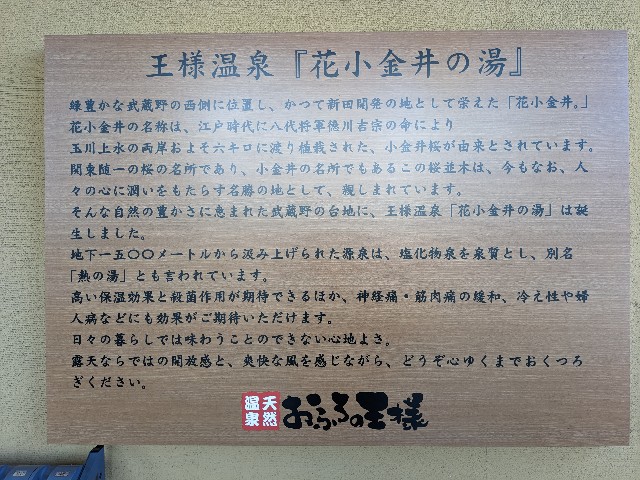 王様温泉『花小金井の湯』
緑豊かな武蔵野の西側に位置し、かつて新田開発の地として栄えた「花小金井。」
花小金井の名称は、江戸時代に八代将軍徳川吉宗の命により
玉川上水の両岸およそ六キロに渡り植栽された、小金井桜が由来とされています。
関東随一の桜の名所であり、小金井の名所でもあるこの桜並木は、今もなお、人
々の心に潤いをもたらす名勝の地として、親しまれています。
そんな自然の豊かさに恵まれた武蔵野の台地に、王様温泉「花小金井の湯」は誕
生しました。
地下一五〇〇メートルから汲み上げられた源泉は、塩化物泉を泉質とし、別名
「熱の湯」とも言われています。
高い保温効果と殺菌作用が期待できるほか、神経痛・筋肉痛の緩和、冷え性や婦
人病などにも効果がご期待いただけます。
日々の暮らしでは味わうことのできない心地よさ。
露天ならではの開放感と、爽快な風を感じながら、どうぞ心ゆくまでおくつろ
ぎください。
天然温泉 おふろの王様